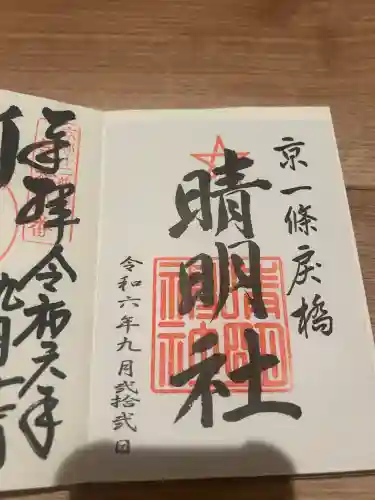 京一條戻橋
晴明社
晴明神社
令和六年九月弐拾弐日
奉拝
令和六年